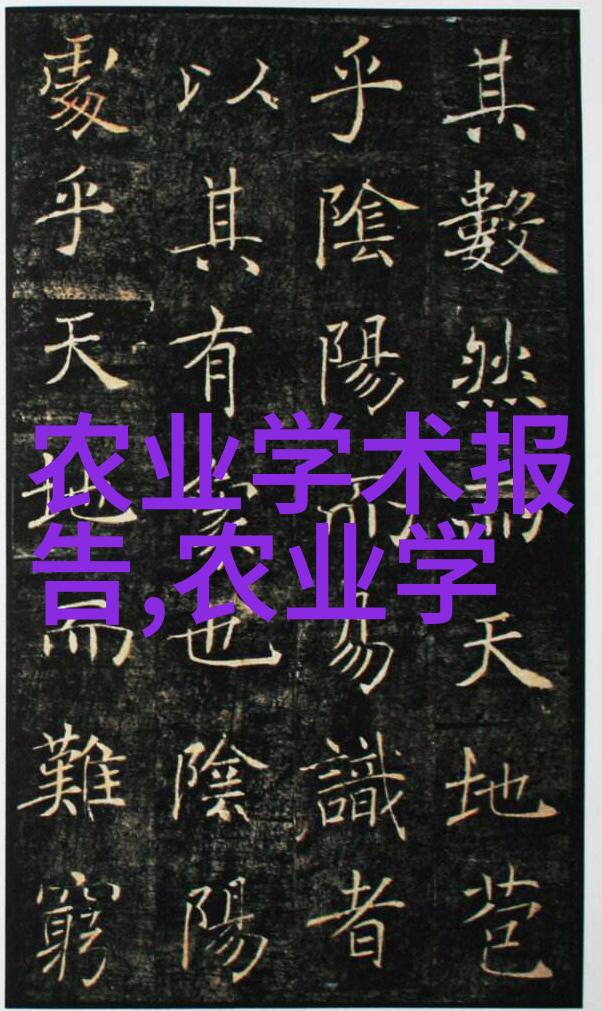 农业学术报
告,农业学
其數然而天地苞
乎陰陽而易識者
以其有象也陰陽
處乎天地而難窮